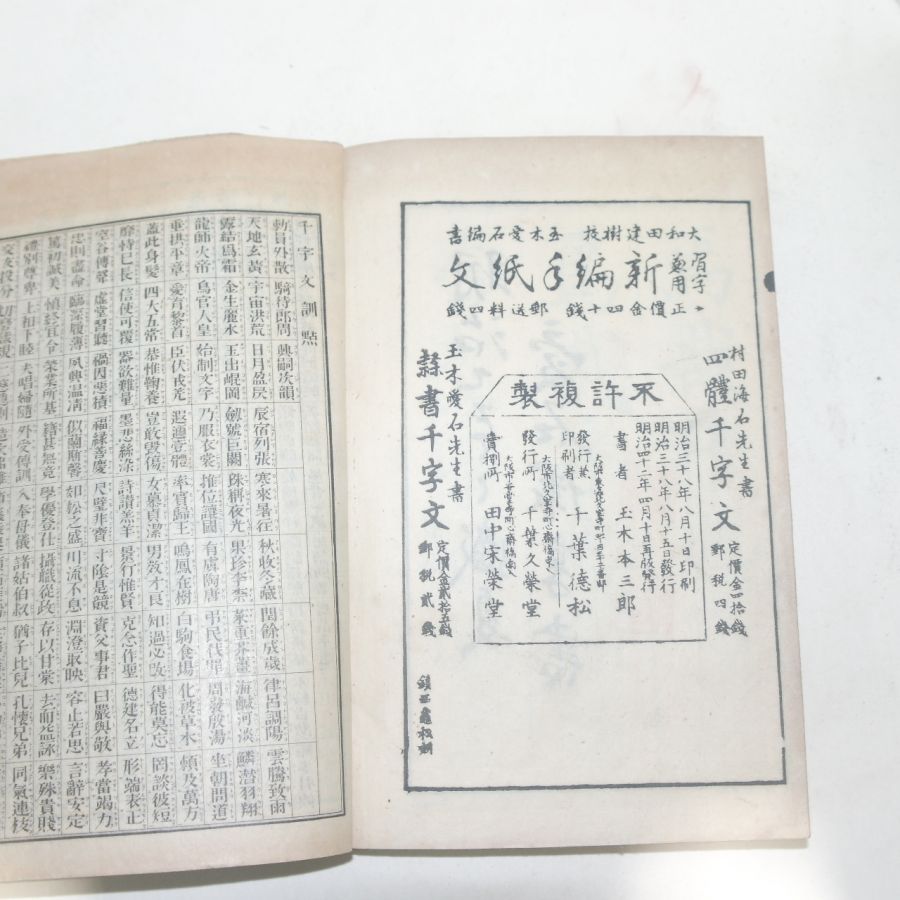 大和田建樹校 玉木愛石編書
習字兼用 新編手紙文
正價金四十錢 郵送料四錢
村田海石先生書
四體千字文
定價金四拾錢
郵税四錢
不許複製
明治三十八年八月十日印刷
明治三十八年八月十五日發行
明治四十二年四月十日再版發行
書者 玉木本三郎
發行兼印刷者 千葉德松
大阪市北久寶寺町心齋橋東入
發行所 千葉久榮堂
賣捌所 田中宋榮堂
玉木愛石先生書
隷書千字文
定價金貳拾五錢
郵税貳錢
千字文訓點
勅員外散 騎侍郎周 興嗣次韻
天地玄黃 宇宙洪荒 日月盈昃 辰宿列張 寒來暑往 秋收冬藏 閏餘成歲 律呂調陽 雲騰致雨
露結爲霜 金生麗水 玉出崐岡 劍號巨闕 珠稱夜光 果珍李柰 菜重芥薑 海鹹河淡 鱗潛羽翔
龍師火帝 鳥官人皇 始制文字 乃服衣裳 推位讓國 有虞陶唐 弔民伐罪 周發殷湯 坐朝問道
垂拱平章 愛育黎首 臣伏戎羌 遐邇壹體 率賓歸王 鳴鳳在樹 白駒食場 化被草木 賴及萬方
蓋此身髮 四大五常 恭惟鞠養 豈敢毀傷 女慕貞潔 男效才良 知過必改 得能莫忘 罔談彼短
靡恃己長 信使可覆 器欲難量 墨悲絲染 詩讚羔羊 景行惟賢 克念作聖 德建名立 形端表正
空谷傳聲 虛堂習聽 禍因惡積 福緣善慶 尺璧非寶 寸陰是競 資父事君 曰嚴與敬 孝當竭力
忠則盡命 臨深履薄 夙興溫凊 似蘭斯馨 如松之盛 川流不息 淵澄取映 容止若思 言辭安定
篤初誠美 愼終宜令 榮業所基 籍甚無竟 學優登仕 攝職從政 存以甘棠 去而益詠 樂殊貴賤
禮別尊卑 上和下睦 夫唱婦隨 外受傅訓 入奉母儀 諸姑伯叔 猶子比兒 孔懷兄弟 同氣連枝